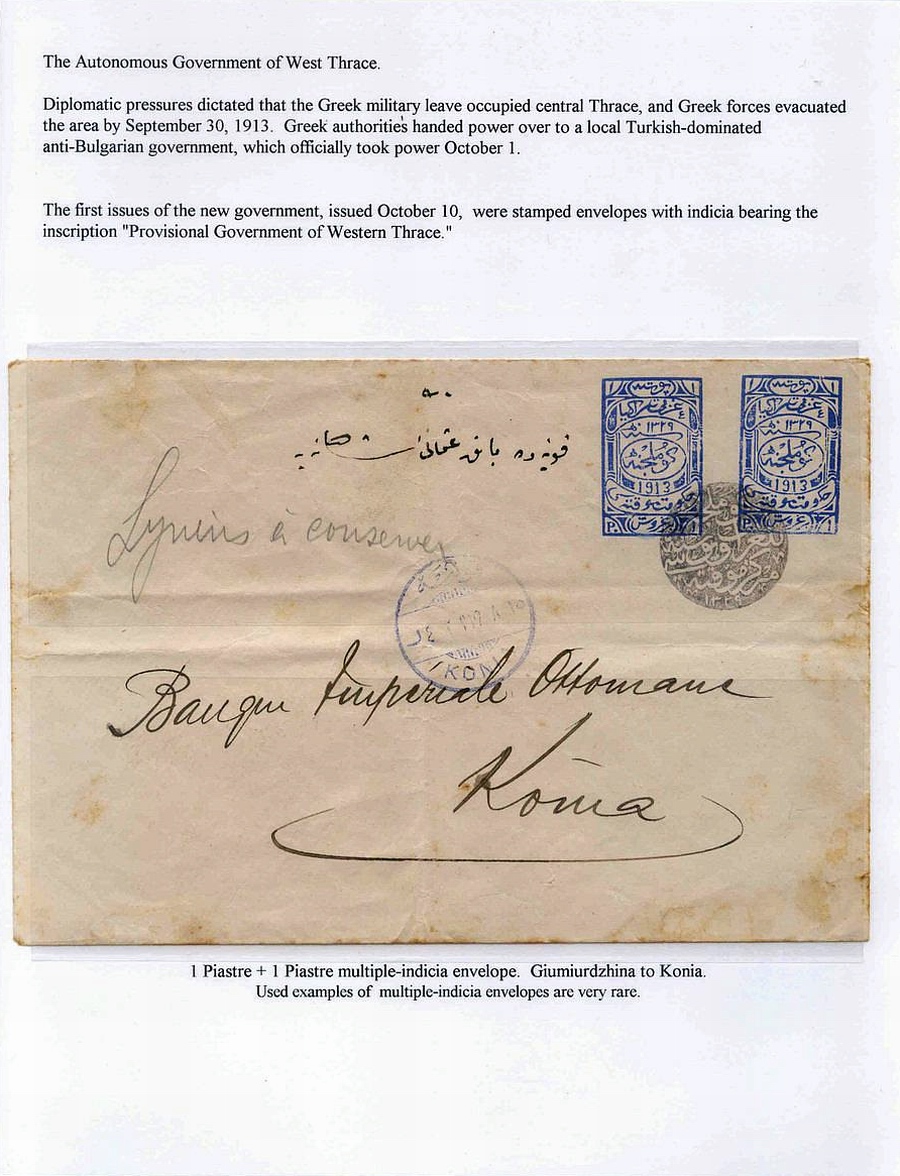 The Autonomous Government of West Thrace.
Diplomatic pressures dictated that the Greek military leave occupied central Thrace, and Greek forces evacuated
the area by September 30, 1913. Greek authorities handed power over to a local Turkish-dominated
anti-Bulgarian government, which officially took power October 1.
The first issues of the new government, issued October 10, were stamped envelopes with indicia bearing the
inscription "Provisional Government of Western Thrace."
١٣٢٩
كوملجنه
1913
١٣٢٩
كوملجنه
1913
à conserver
Banque Imperiale Ottomane
Konia
1 Piastre + 1 Piastre multiple-indicia envelope. Giumiurdzhina to Konia.
Used examples of multiple-indicia envelopes are very rare.